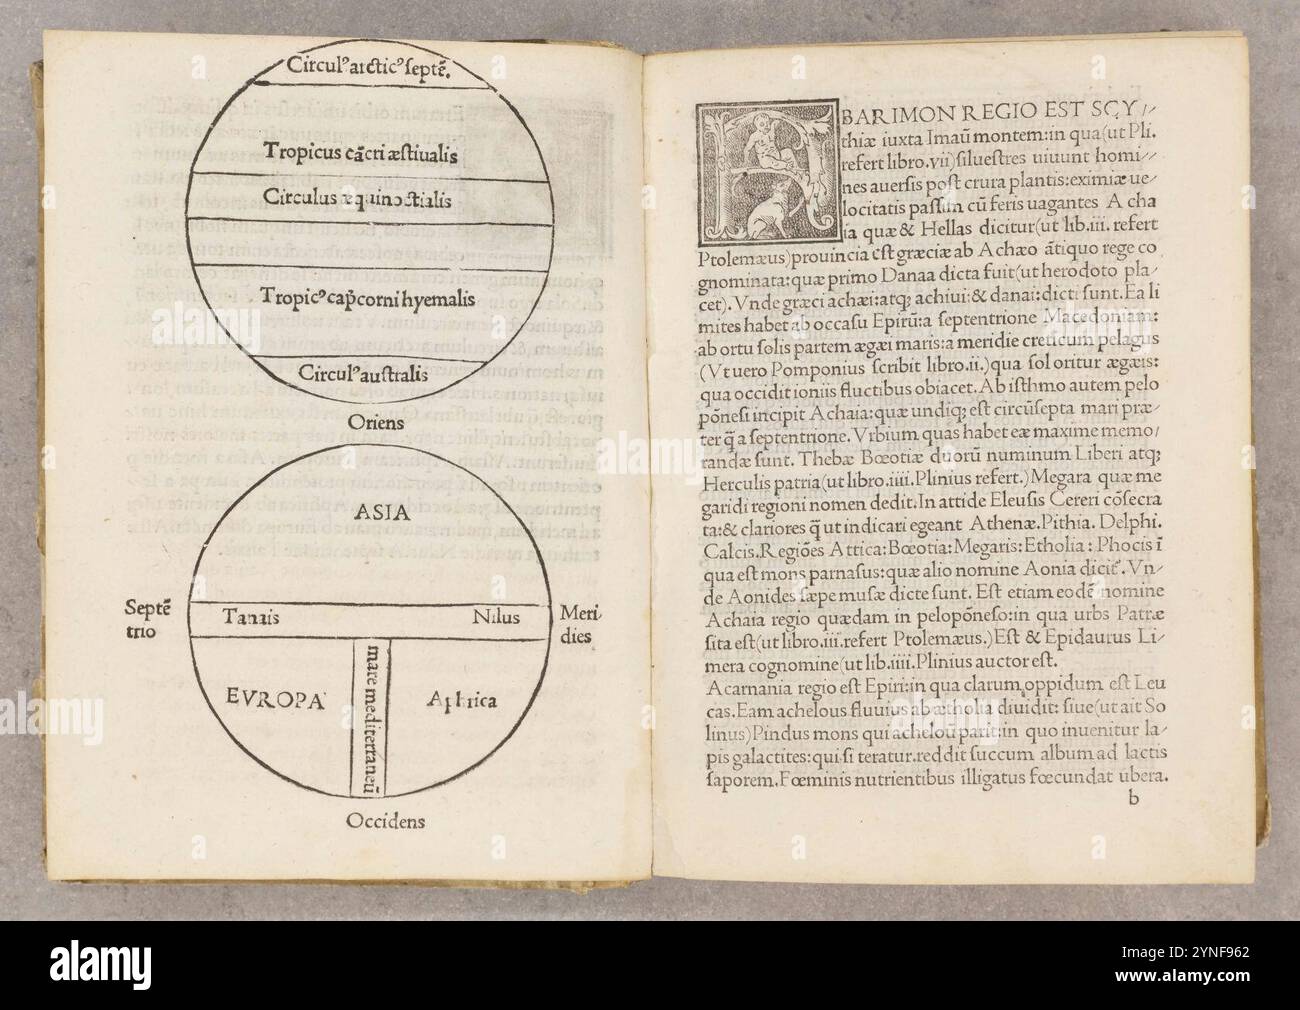 Circulꝰ arcticꝰ septē.
Tropicus cācri æstiualis
Circulus æquinoctialis
Tropicꝰ cap̄corni hyemalis
Circulꝰ australis
Oriens
ASIA
Septē
trio
Tanais
Nilus
Meri
dies
EVROPA
mare mediterraneū
Aphrica
Occidens
ABARIMON REGIO EST SCY/
thiæ iuxta Imaū montem: in qua (ut Pli.
refert libro.vii) siluestres uiuunt homi//
nes auersis post crura plantis: eximiæ ue/
locitatis passim cū feris uagantes A cha
ia quæ & Hellas dicitur (ut lib.iii. refert
Ptolemæus) prouincia est græciæ ab Achæo ātiquo rege co
gnominata: quæ primo Danaa dicta fuit (ut herodoto pla/
cet). Vnde græci achæi: atq; achiui: & danai: dicti sunt. Ea li
mites habet ab occasu Epirū: a septentrione Macedoniam:
ab ortu solis partem ægæi maris: a meridie creticum pelagus
(Vt uero Pomponius scribit libro.ii.) qua sol oritur ægæis:
qua occidit ioniis fluctibus obiacet. Ab isthmo autem pelo
pōnesi incipit Achaia: quæ undiq; est circūsepta mari præ/
ter q̄ a septentrione. Vrbium quas habet eæ maxime memo/
randæ sunt. Thebæ Bœotiæ duorū numinum Liberi atq;
Herculis patria (ut libro.iiii. Plinius refert.) Megara quæ me
garidi regioni nomen dedit. In attide Eleusis Cereri cōsecra
ta: & clariores q̄ ut indicari egeant Athenæ. Pithia. Delphi.
Calcis. Regiōes Attica: Bœotia: Megaris: Etholia: Phocis ī
qua est mons parnasus: quæ alio nomine Aonia dicit. Vn/
de Aonides sæpe musæ dicte sunt. Est etiam eodē nomine
Achaia regio quædam in pelopōneso: in qua urbs Patræ
sita est (ut libro.iii. refert Ptolemæus.) Est & Epidaurus Li/
mera cognomine (ut lib.iiii. Plinius auctor est.
Acarnania regio est Epiri: in qua clarum oppidum est Leu
cas. Eam achelous fluuius ab ætholia diuidit: siue (ut ait So
linus) Pindus mons qui achelou parit: in quo inuenitur la/
pis galactites: qui si teratur. reddit succum album ad lactis
saporem. Fœminis nutrientibus illigatus fœcundat ubera.
b
alamy
Image ID: 2YNF962
www.alamy.com